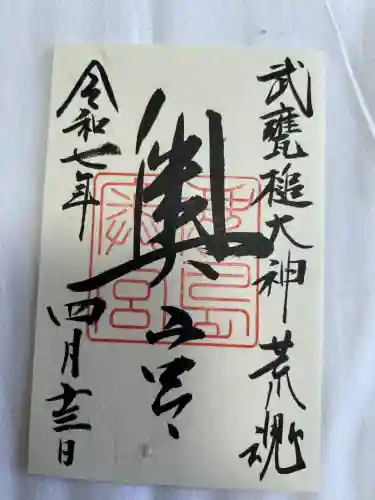 武甕槌大神 荒魂
奥宮
鹿島奥宮
令和七年
四月十三日